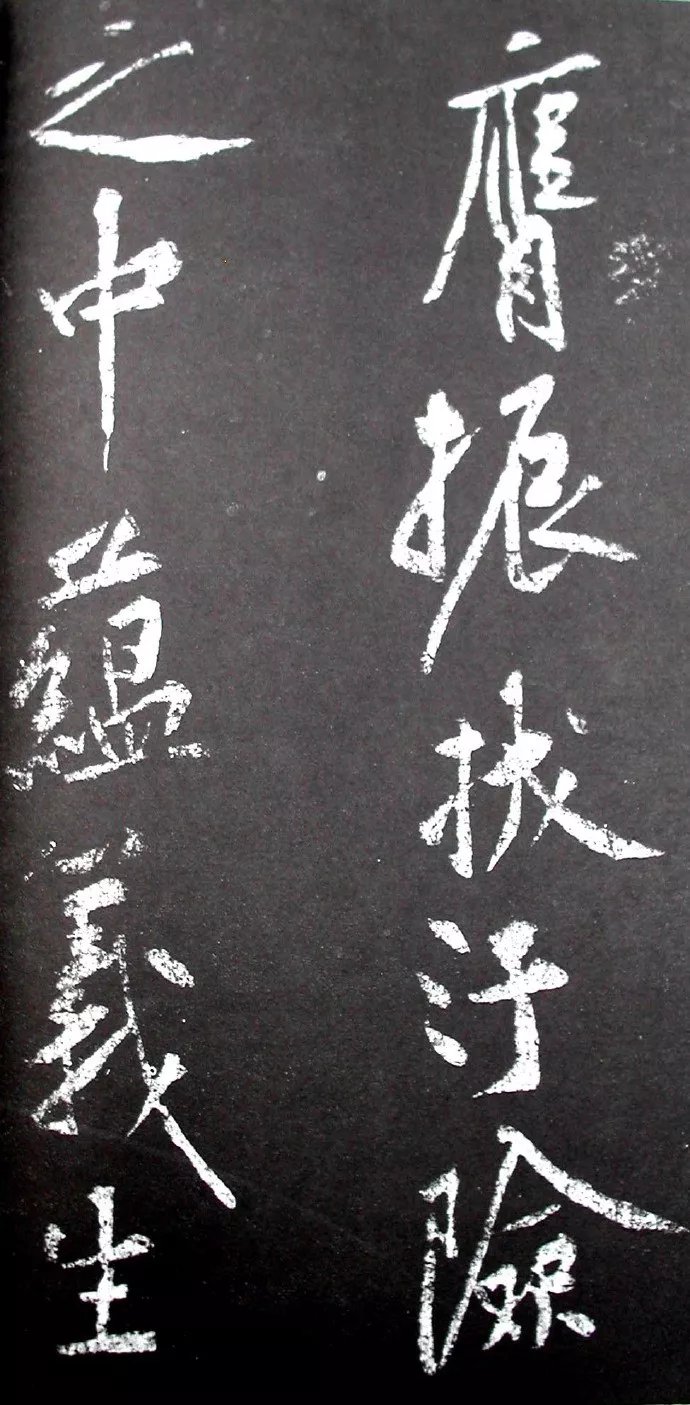 膺振拔汙險
之中蘊義生